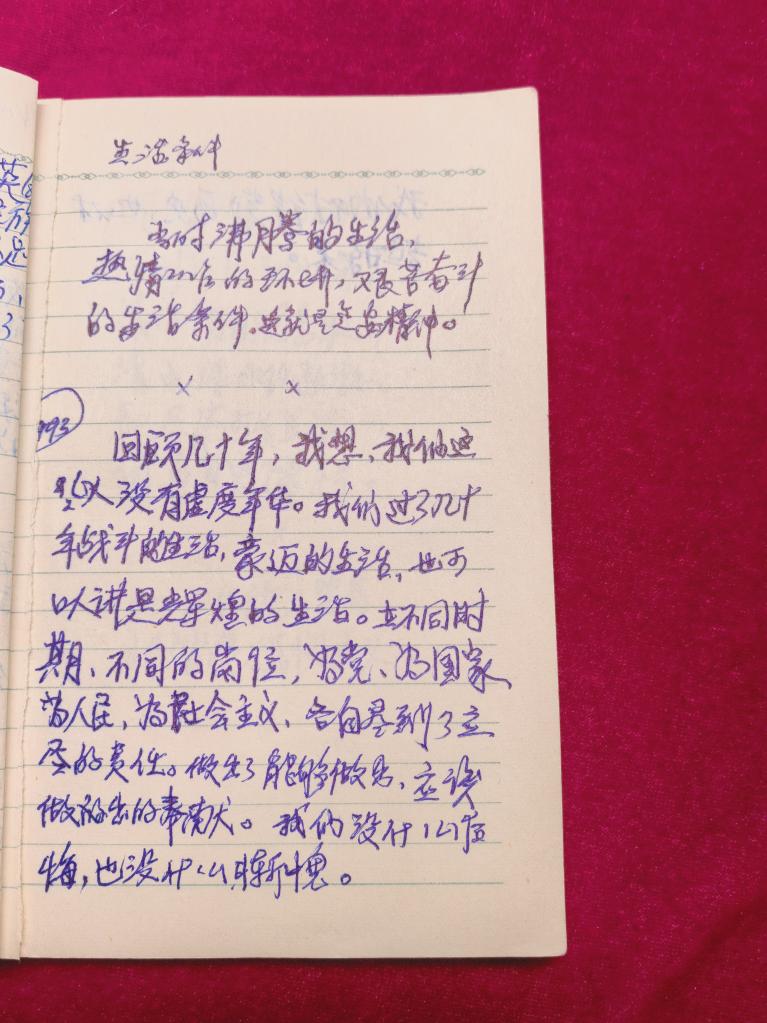 生活条件
当时沸腾的生活，
热情工作的环境，艰苦奋斗
的生活条件。这就是延安精神。
× ×
993
回顾几十年，我想，我们这
些人没有虚度年华。我们过了几十
年战斗的生活，豪迈的生活，也可
以讲是辉煌的生活。在不同时
期、不同的岗位，为党、为国家
为人民，为社会主义、各自尽到了应
尽的责任。做出了能够做出、应该
做的出的奉献。我们没什么后
悔，也没什么惭愧。
英
族
足
3